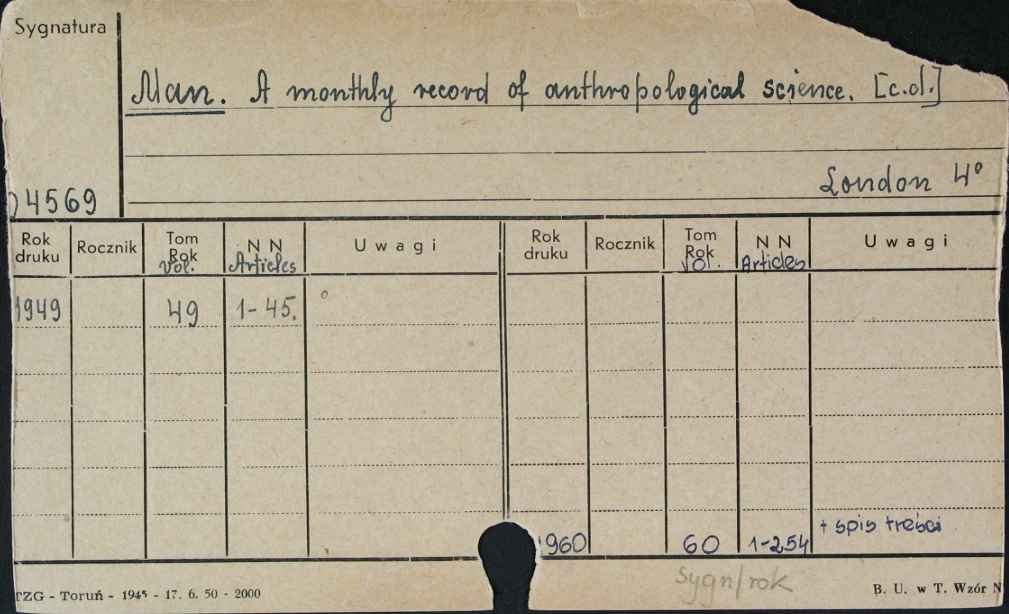 Sygnatura
Man. A monthly record of anthropological science. [c.d.]
London 4°
04569
Rok druku Rocznik Tom Rok Vol. N N Articles Uwagi Rok druku Rocznik Tom Rok Vol. N N Articles Uwagi
1949 49 1-45. °
1960 60 1-254 + spis treści
Sygn/rok
TZG - Toruń - 1945 - 17. 6. 50 - 2000 B. U. w T. Wzór N